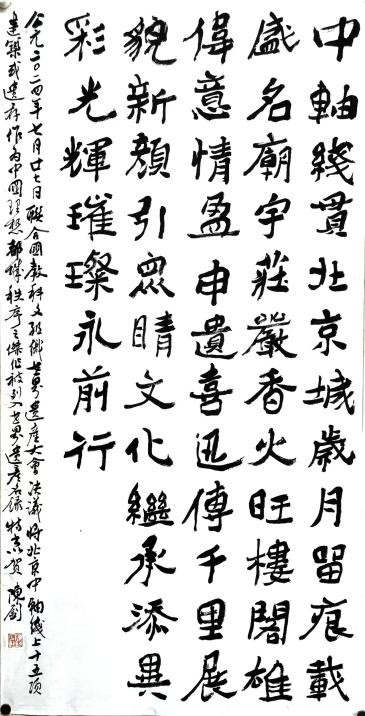 中軸綫貫北京城歲月留痕載
盛名廟宇莊嚴香火旺樓閣雄
偉意情盈申遺喜迅傳千里展
貌新顏引眾睛文化繼承添異
彩光輝璀璨永前行
公元二〇二四年七月廿七日聯合國教科文組織世界遺産大會決議將北京中軸綫上十五項
建築或遺存作為中國理想都城秩序之傑作被列入世界遺產名錄特志賀 陳劍